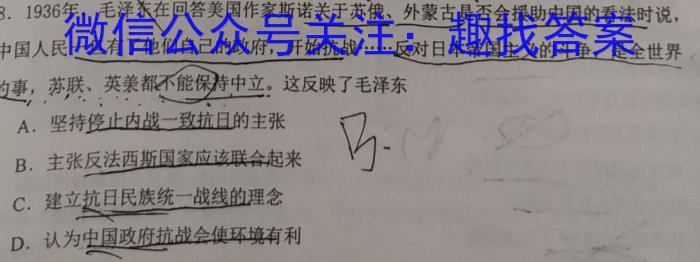 8. 1936年，毛泽东在回答美国作家斯诺关于苏俄、外蒙古是否会援助中国的看法时说，
微信公众号关注：趣找答案
中国人民 他们自己的政府，开始抗战……反对日本帝国主义的斗争，是全世界
的事，苏联、英美都不能保持中立。这反映了毛泽东
A．坚持停止内战一致抗日的主张
B．主张反法西斯国家应该联合起来
C．建立抗日民族统一战线的理念
D．认为中国政府抗战会使环境有利
B.